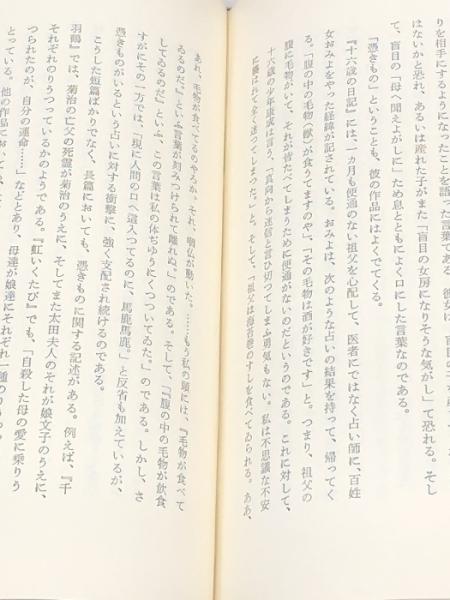 りを相手にするようになったことを語った言葉である。彼女は、
はないかと恐れ、あるいは産れた子がまた「盲目の女房になりそうな気がし」て恐れる。そし
て、盲目の「母へ聞えよがしに」ため息とともによく口にした言葉なのである。
「憑きもの」ということも、彼の作品にはよくでてくる。
『十六歳の日記』には、一カ月も便通のない祖父を心配して、医者にではなく占い師に、百姓
女おみよをやった経緯が記されている。おみよは、次のような占いの結果を持って、帰ってく
る。「腹の中の毛物（獣）が食うてますのや」、「その毛物は酒が好きです」と。つまり、祖父の
腹に毛物がいて、それが皆たべてしまうために便通がないのだというのである。これに対して、
十六歳の少年康成は言う、「真向から迷信と言ひ切つてしまふ勇気もない。私は不思議な不安
に襲はれて全く迷つてしまつた。」と。そして、「祖父は海苔巻のすしを食べてゐられる。ああ、
あれ、毛物が食べてるのやろか。それ、咽仏が動いた。……もう私の頭には、『毛物が食べて
ゐるのだ』といふ言葉が刻みつけられて離れぬ。」のである。そして、「『腹の中の毛物が飲食
してゐるのだ』といふ、この言葉は私の体ぢゆうにくつついてゐた。」のである。しかし、さ
すがにその一方では、「現に人間の口へ這入つてるのに、馬鹿馬鹿。」と反省も加えているが、
憑きものがいるという占いに対する衝撃に、強く支配され続けるのである。
こうした短篇ばかりでなく、長篇においても、憑きものに関する記述がある。例えば、『千
羽鶴』では、菊治の亡父の死霊が菊治のうえに、そしてまた太田夫人のそれが娘文子のうえに、
それぞれのりうつっているかのようである。『虹いくたび』でも、「自殺した母の愛に乗りう
つられたのか、自分の運命……」などとあり、母達が娘達にそれぞれ一種の
とっている。他の作品においても、